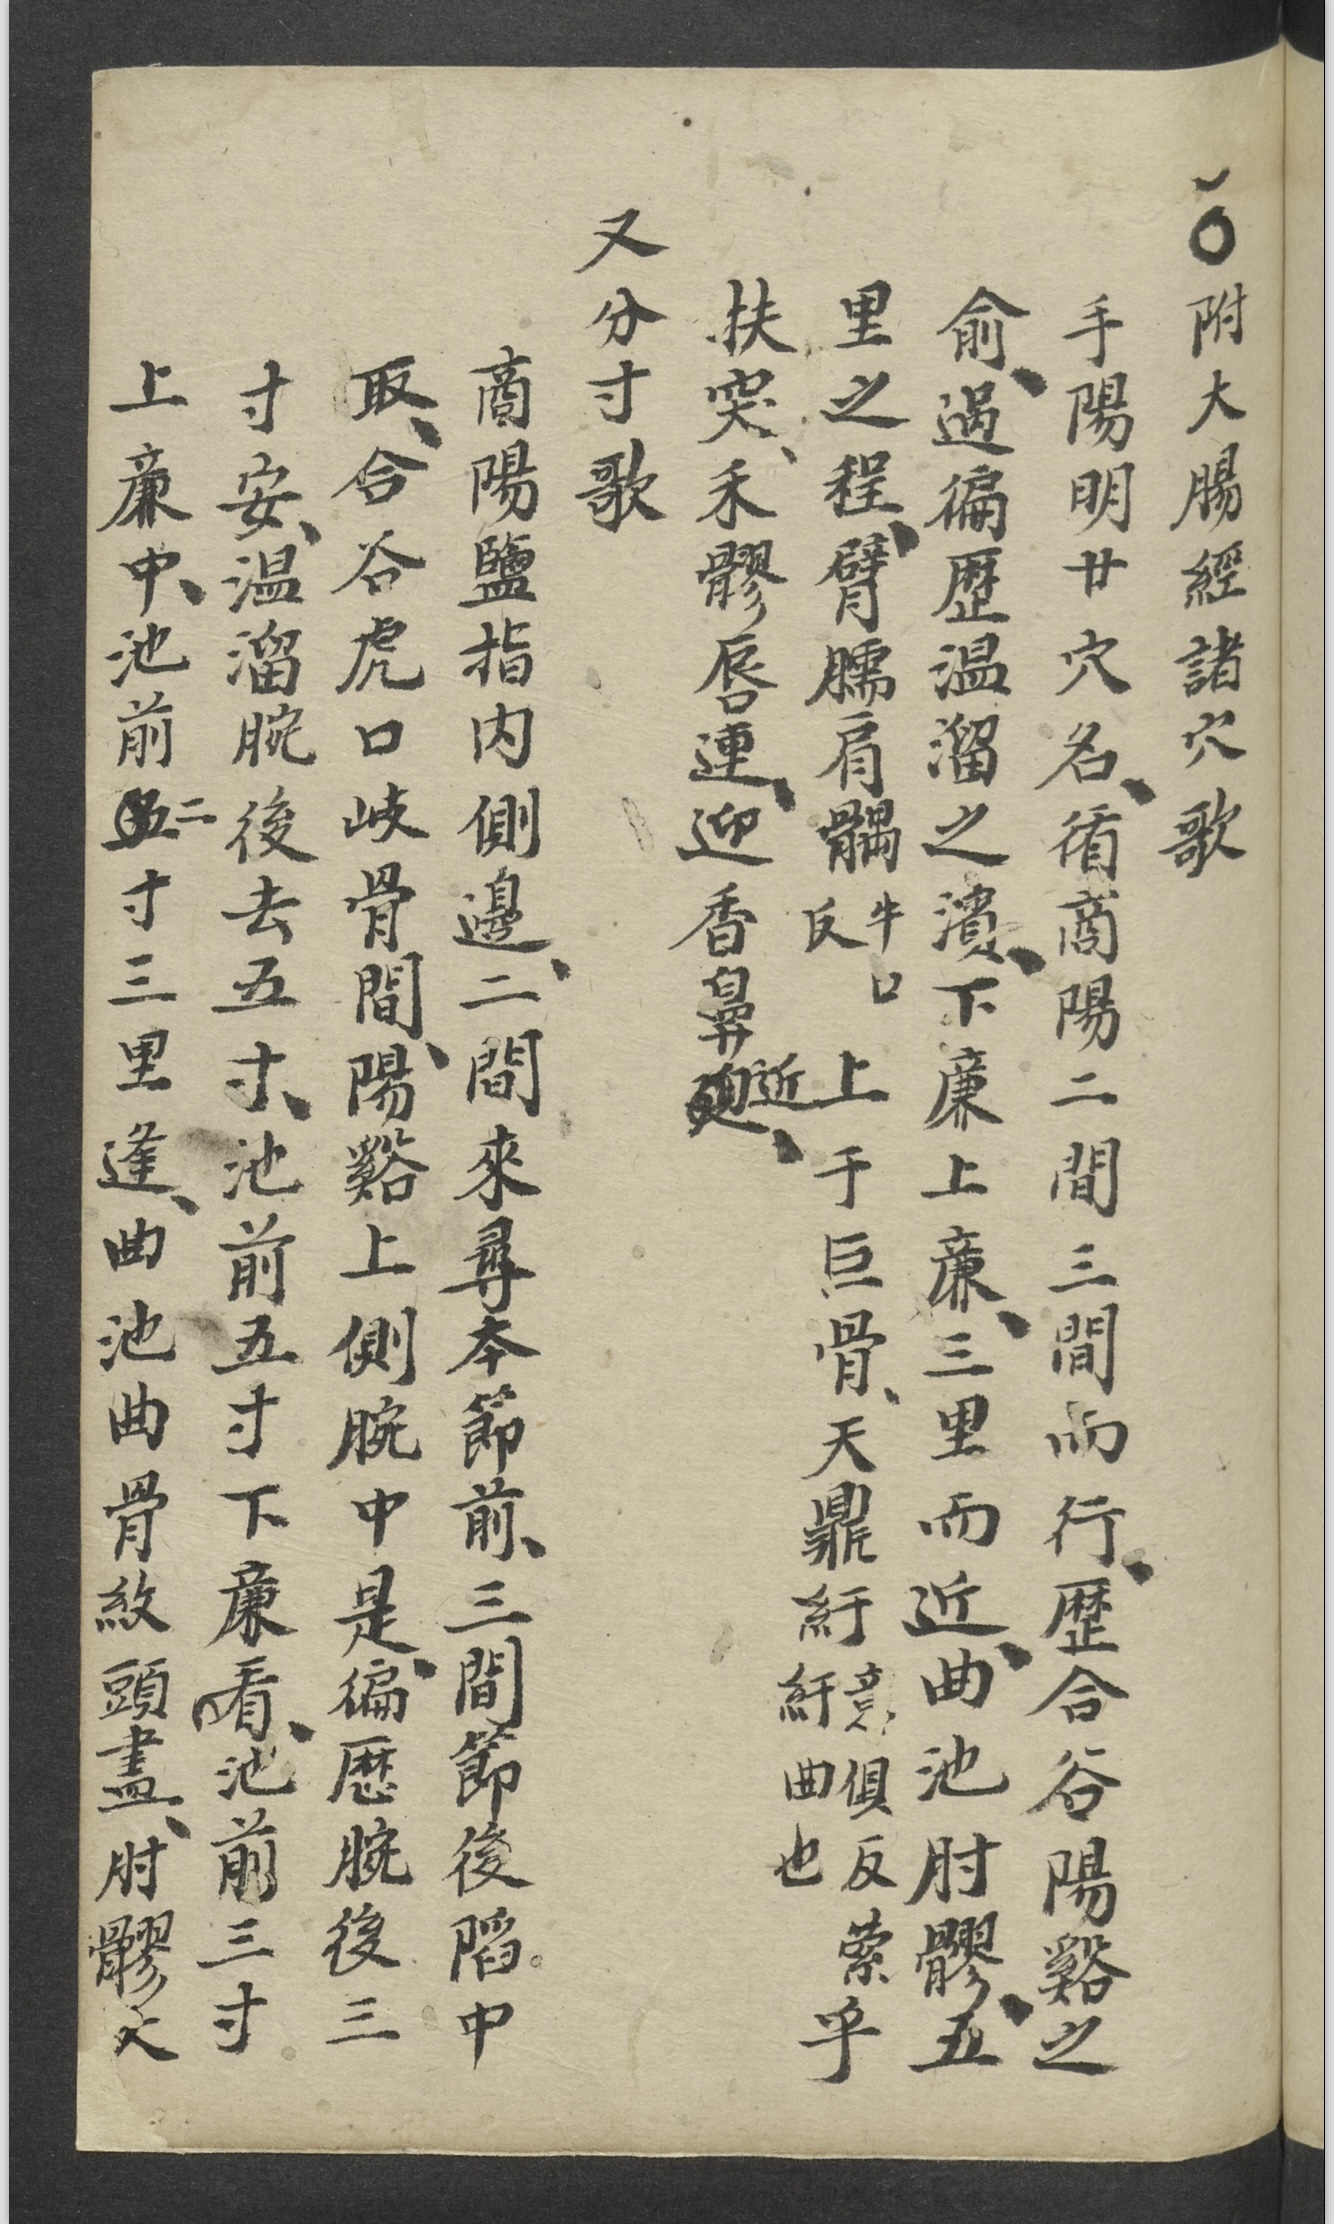 ○附大腸經諸穴歌
手陽明廿穴名、循商陽二間三間而行、歷合谷陽谿之
俞、過偏歷温溜之濱、下廉上廉、三里而近、曲池肘髎、五
里之程、臂臑肩髃牛口反上于巨骨、天鼎紆意俱反紆曲也縈乎
扶突、禾髎唇連、迎香鼻近、
又分寸歌
商陽鹽指内側邊、二間來尋本節前、三間節後陷中
取、合谷虎口岐骨間、陽谿上側腕中是、偏歷腕後三
寸安、温溜腕後去五寸、池前五寸下廉看、池前三寸
上廉中、池前二寸三里逢、曲池曲骨紋頭盡、肘髎大